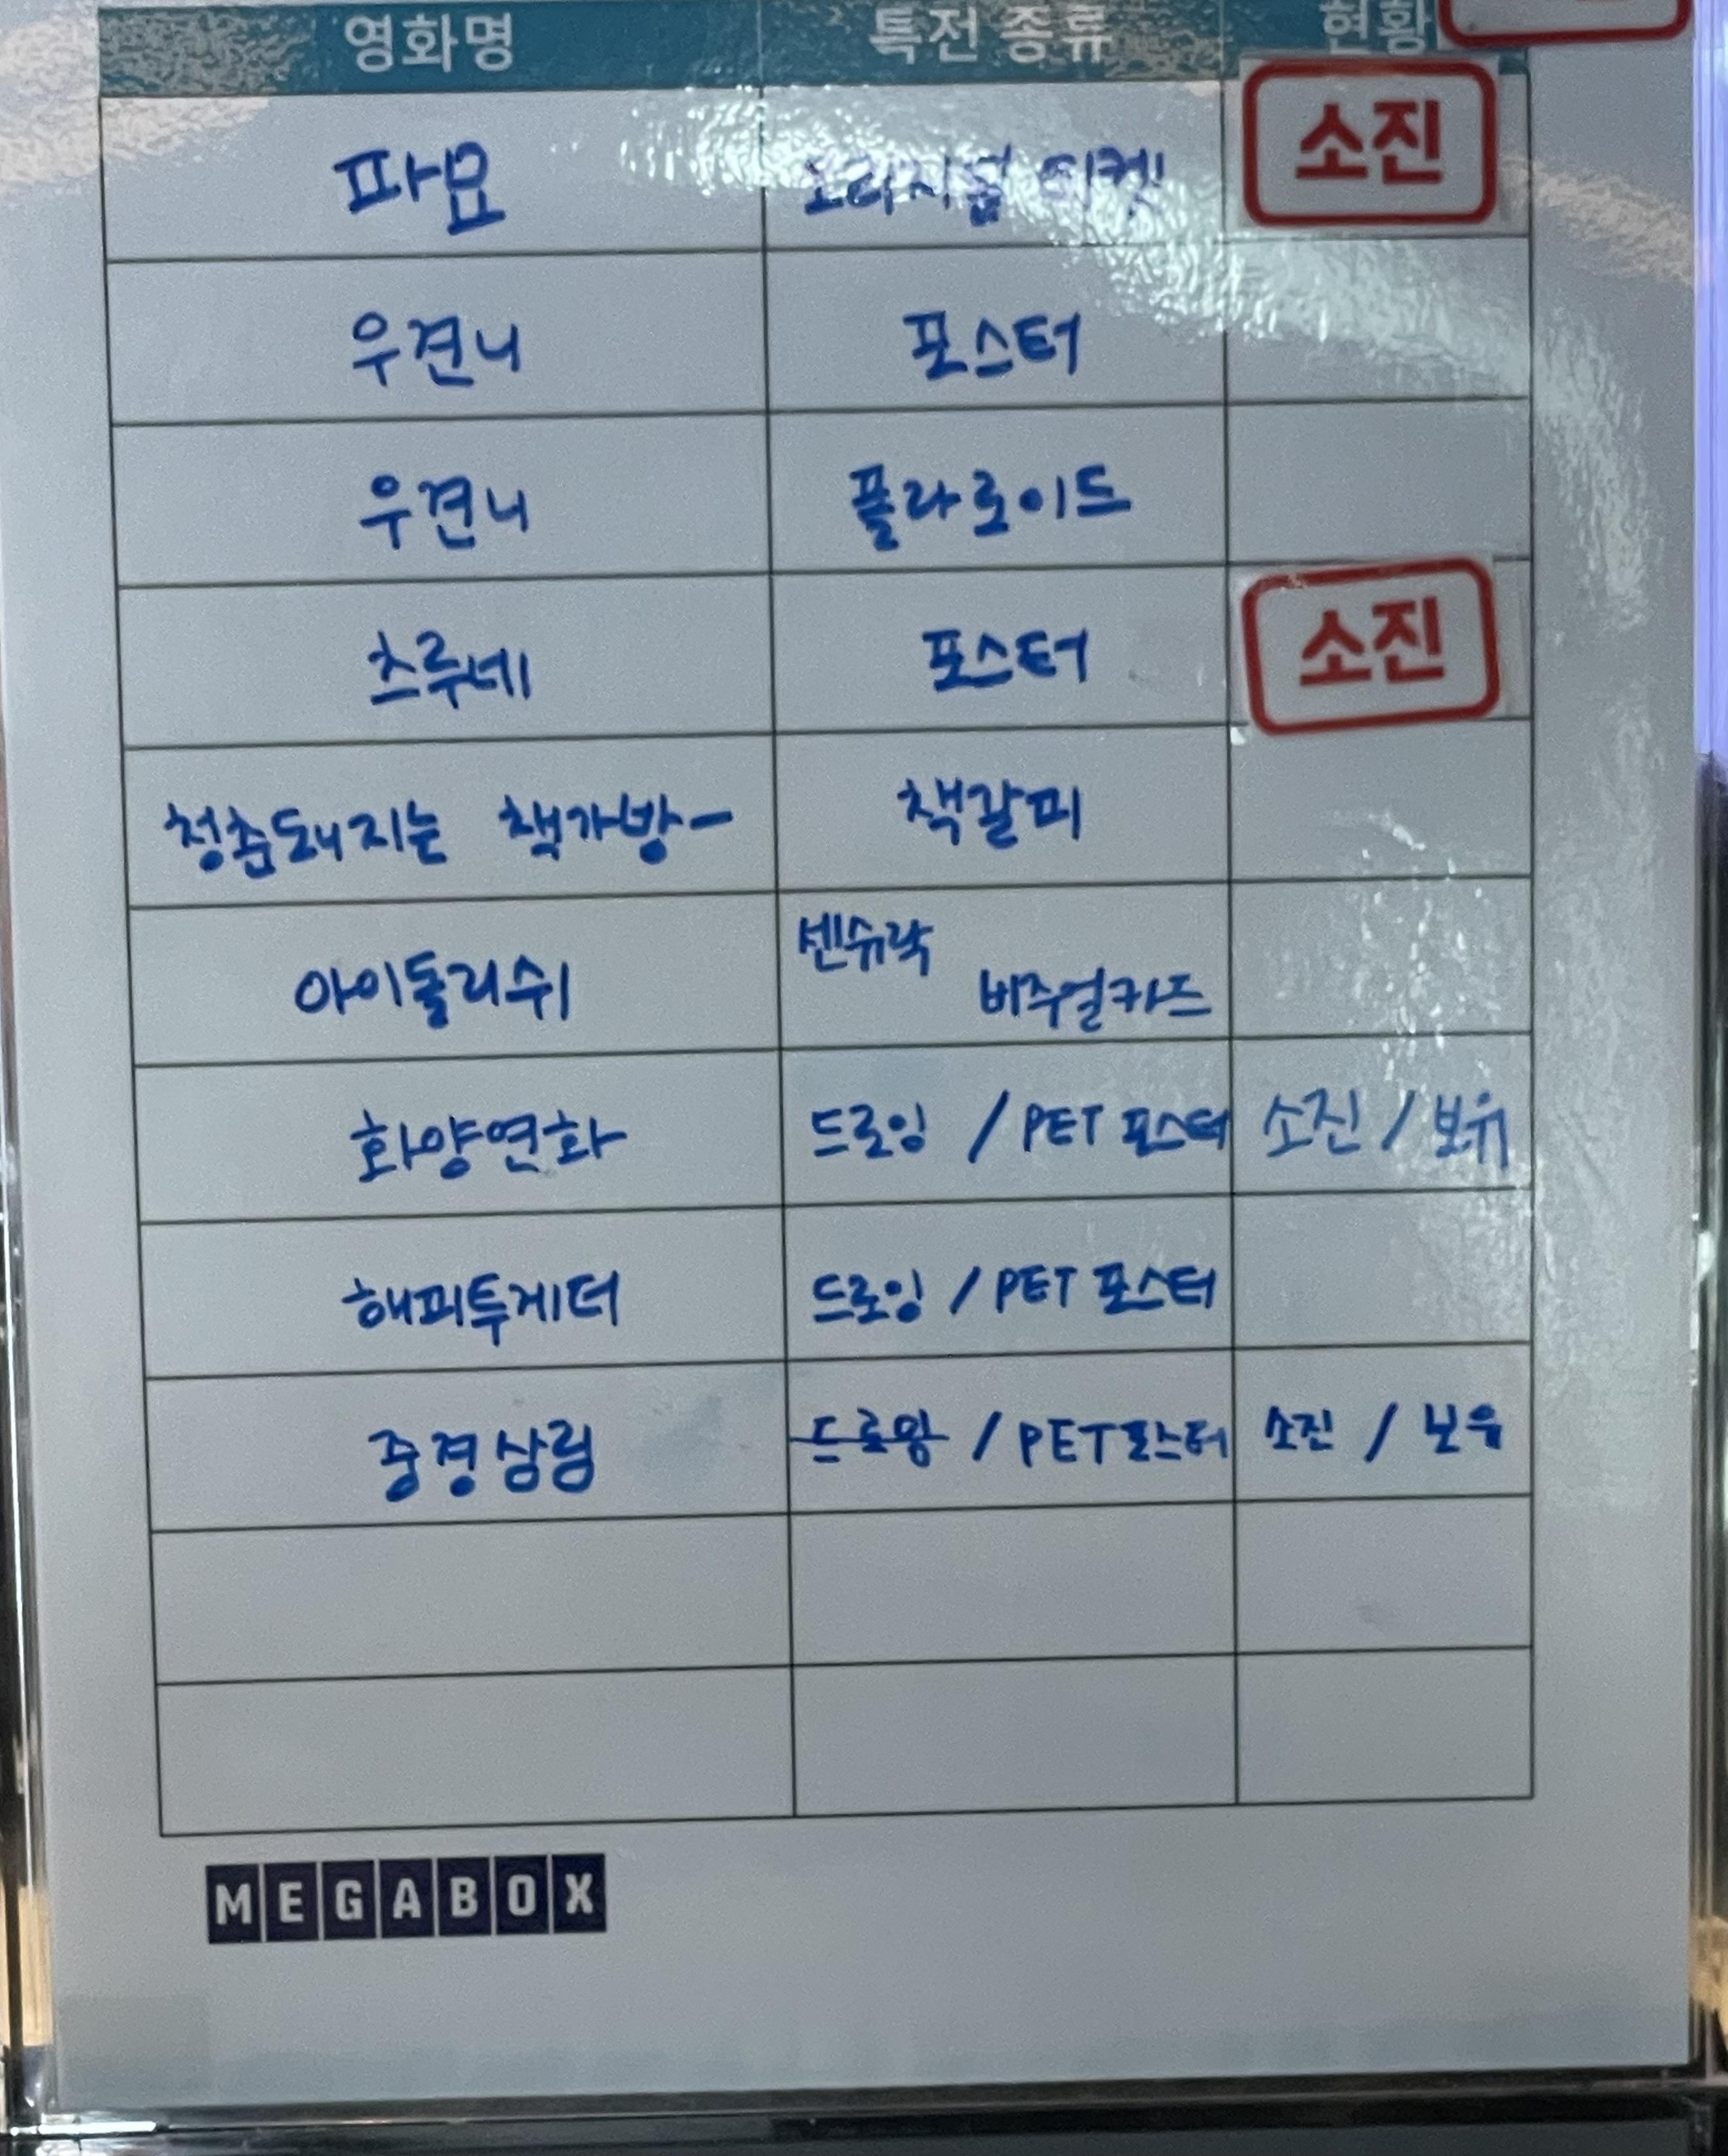 영화명 특전 종류 현황
파묘 오리지널 티켓 소진
우견니 포스터
우견니 폴라로이드
츠루네 포스터 소진
청춘돼지는 책가방- 책갈피
아이돌리쉬 센슈락 비주얼카드
화양연화 드로잉 / PET 포스터 소진 / 보유
해피투게더 드로잉 / PET 포스터
중경삼림 드로잉 / PET 포스터 소진 / 보유
MEGABOX